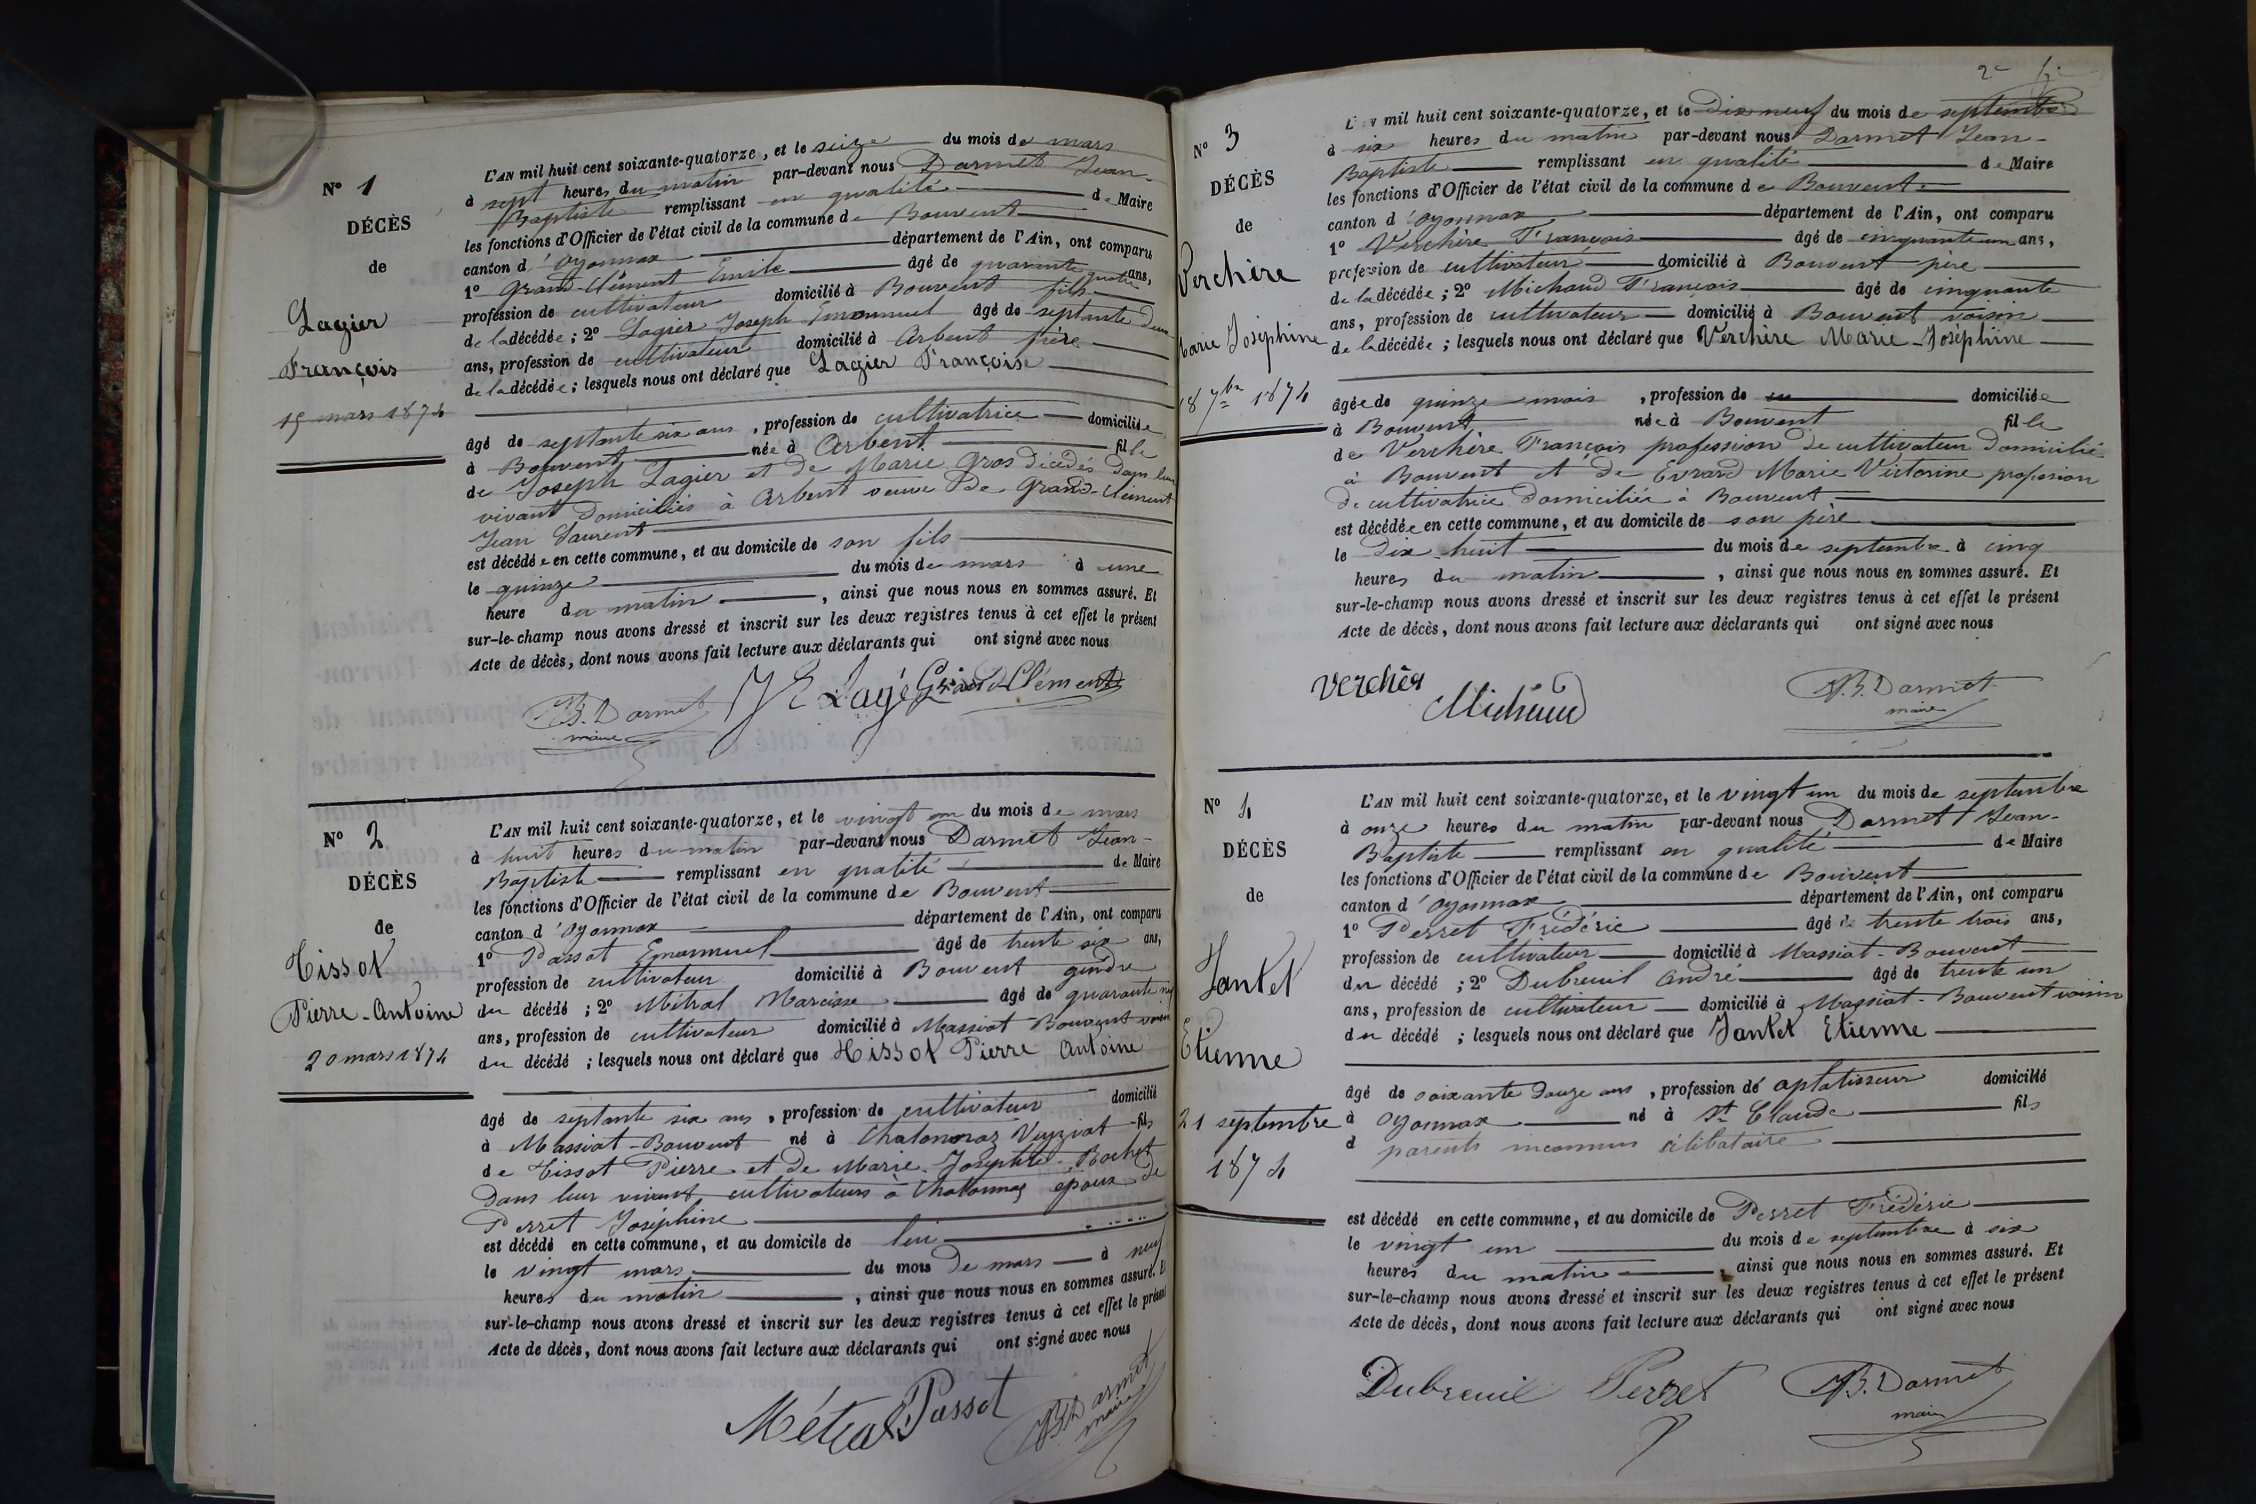 N° 1
DÉCÈS
de
Lagier
François
15 mars 1874
L'AN mil huit cent soixante-quatorze, et le seize du mois de mars
à sept heures du matin par-devant nous Darmet Jean-
Baptiste remplissant en qualité de Maire
les fonctions d'Officier de l'état civil de la commune de Bouvent
canton d'Oyonnax département de l'Ain, ont comparu
1° Grand-Clément Emile âgé de quarante quatre ans,
profession de cultivateur domicilié à Bouvent fils
de la décédée; 2° Lagier Joseph Emmanuel âgé de septante deux
ans, profession de cultivateur domicilié à Arbent frère
de la décédée; lesquels nous ont déclaré que Lagier Françoise
âgé de septante six ans, profession de cultivatrice domiciliée
à Bouvent née à Arbent fille
de Joseph Lagier et de Marie Gros décédés dans leur
vivant domiciliés à Arbent veuve de Grand-Clément
Jean Laurent
est décédée en cette commune, et au domicile de son fils
le quinze du mois de mars à une
heure du matin, ainsi que nous nous en sommes assuré. Et
sur-le-champ nous avons dressé et inscrit sur les deux registres tenus à cet effet le présent
Acte de décès, dont nous avons fait lecture aux déclarants qui ont signé avec nous
J.B. Darmet J E Lagé Grand-Clément
maire
N° 2
DÉCÈS
de
Tissot
Pierre-Antoine
20 mars 1874
L'AN mil huit cent soixante-quatorze, et le vingt un du mois de mars
à huit heures du matin par-devant nous Darmet Jean-
Baptiste remplissant en qualité de Maire
les fonctions d'Officier de l'état civil de la commune de Bouvent
canton d'Oyonnax département de l'Ain, ont comparu
1° Passot Emmanuel âgé de trente six ans,
profession de cultivateur domicilié à Bouvent gendre
du décédé; 2° Métral Narcisse âgé de quarante neuf
ans, profession de cultivateur domicilié à Massiat-Bouvent voisin
du décédé; lesquels nous ont déclaré que Tissot Pierre Antoine
âgé de septante six ans, profession de cultivateur domicilié
à Massiat-Bouvent né à Chatonnaz Veyziat fils
de Tissot Pierre et de Marie-Josephte Rochet
dans leur vivant cultivateurs à Chatonnaz époux de
Perret Joséphine
est décédé en cette commune, et au domicile de lui
le vingt mars du mois de mars à neuf
heures du matin, ainsi que nous nous en sommes assuré. Et
sur-le-champ nous avons dressé et inscrit sur les deux registres tenus à cet effet le présent
Acte de décès, dont nous avons fait lecture aux déclarants qui ont signé avec nous
Métral Passot JB Darmet
maire
2e
N° 3
DÉCÈS
de
Verchère
Marie Joséphine
18 7bre 1874
L'AN mil huit cent soixante-quatorze, et le dix neuf du mois de septembre
à six heures du matin par-devant nous Darmet Jean-
Baptiste remplissant en qualité de Maire
les fonctions d'Officier de l'état civil de la commune de Bouvent
canton d'Oyonnax département de l'Ain, ont comparu
1° Verchère François âgé de cinquante un ans,
profession de cultivateur domicilié à Bouvent père
de la décédée; 2° Michaud François âgé de cinquante
ans, profession de cultivateur domicilié à Bouvent voisin
de la décédée; lesquels nous ont déclaré que Verchère Marie-Joséphine
âgée de quinze mois, profession de domiciliée
à Bouvent née à Bouvent fille
de Verchère François profession de cultivateur domicilié
à Bouvent et de Evrard Marie Victorine profession
de cultivatrice domiciliée à Bouvent
est décédée en cette commune, et au domicile de son père
le dix-huit du mois de septembre à cinq
heures du matin, ainsi que nous nous en sommes assuré. Et
sur-le-champ nous avons dressé et inscrit sur les deux registres tenus à cet effet le présent
Acte de décès, dont nous avons fait lecture aux déclarants qui ont signé avec nous
Verchèr Michaud J.B. Darmet
maire
N° 4
DÉCÈS
de
Jantet
Etienne
21 septembre
1874
L'AN mil huit cent soixante-quatorze, et le vingt un du mois de septembre
à onze heures du matin par-devant nous Darmet Jean-
Baptiste remplissant en qualité de Maire
les fonctions d'Officier de l'état civil de la commune de Bouvent
canton d'Oyonnax département de l'Ain, ont comparu
1° Perret Frédéric âgé de trente trois ans,
profession de cultivateur domicilié à Massiat-Bouvent
du décédé; 2° Dubreuil André âgé de trente un
ans, profession de cultivateur domicilié à Massiat-Bouvent voisin
du décédé; lesquels nous ont déclaré que Jantet Etienne
âgé de soixante douze ans, profession de aplatisseur domicilié
à Oyonnax né à St Claude fils
d parents inconnus célibataire
est décédé en cette commune, et au domicile de Perret Frédéric
le vingt un du mois de septembre à six
heures du matin, ainsi que nous nous en sommes assuré. Et
sur-le-champ nous avons dressé et inscrit sur les deux registres tenus à cet effet le présent
Acte de décès, dont nous avons fait lecture aux déclarants qui ont signé avec nous
Dubreuil Perret J.B. Darmet
maire